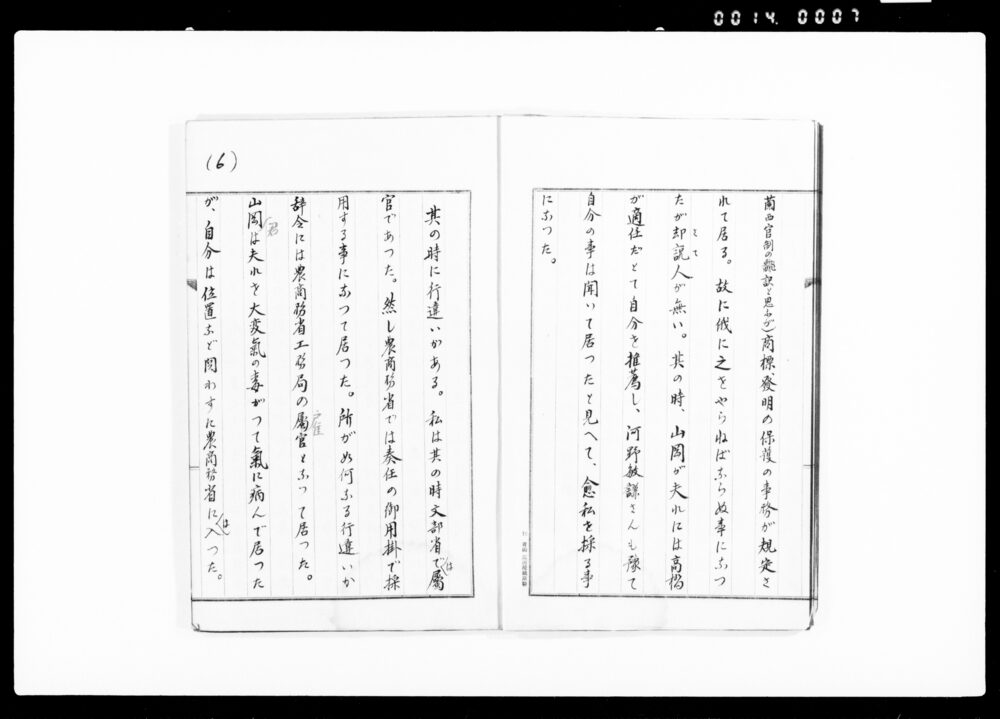 0014 0007
蘭西官制の飜訳と思ふが)商標、發明の保護の事務が規定さ
れて居る。故に俄に之をやらねばならぬ事になつ
たが却説人が無い。其の時、山岡が夫れには高橋
さて
が適任だとて自分を推薦し、河野敏謙さんも豫て
自分の事は聞いて居つたと見へて、愈私を採る事
になつた。
(6)
其の時に行違いがある。私は其の時文部省で屬
は
官であつた。然し農商務省では奏任の御用掛で採
用する事になつて居つた。所が如何なる行違いか
辞令には農商務省工務局の屬官となつて居つた。
雇
山岡は夫れを大変氣の毒がつて氣に病んで居つた
君
が、自分は位置など問わずに農商務省に入つた。
は